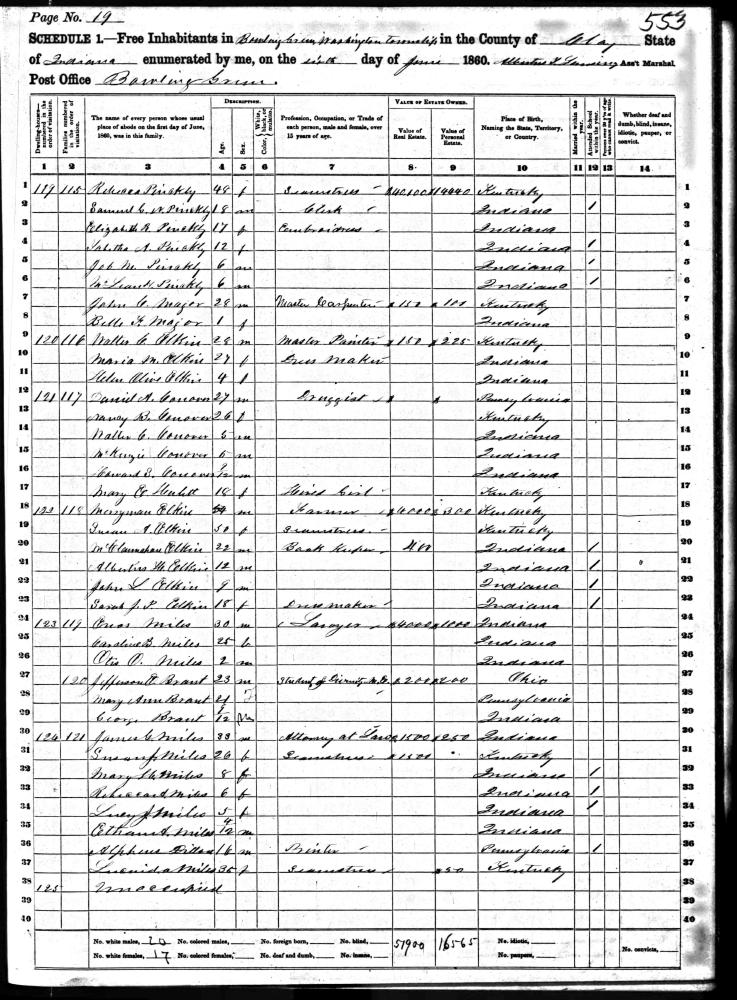 Page No. 19
553
SCHEDULE 1.—Free Inhabitants in Bowling Green Washington Township in the County of Clay State
of Indiana enumerated by me, on the sixth day of June 1860. Ass't Marshal
Post Office Bowling Green
DESCRIPTION. VALUE OF ESTATE OWNED.
Dwelling-houses—numbered in the order of visitation. Families numbered in the order of visitation. The name of every person whose usual place of abode on the first day of June, 1860, was in this family. Age. Sex. Color, White, black, or mulatto. Profession, Occupation, or Trade of each person, male and female, over 15 years of age. Value of Real Estate. Value of Personal Estate. Place of Birth, Naming the State, Territory, or Country. Married within the year. Attended School within the year. Persons over 20 y'rs of age who cannot read & write. Whether deaf and dumb, blind, insane, idiotic, pauper, or convict.
1 2 3 4 5 6 7 8 9 10 11 12 13 14
1 119 115 Rebecca Pinckly 48 f Seamstress Kentucky 1
2 Samuel C. Pinckly 18 m Clerk Indiana 1 2
3 Elizabeth R Pinckly 17 f Indiana 3
4 Tabitha A. Pinckly 12 f Indiana 1 4
5 Job M. Pinckly 6 m Indiana 1 5
6 Pinckly 6 m Indiana 1 6
7 John C. Major 28 m Master Carpenter $150 $100 Kentucky 7
8 Belle F. Major 1 f Indiana 8
9 120 116 Walter C. Elkin 28 m Master Painter $150 $225 Kentucky 9
10 Maria M. Elkin 27 f Dress Maker Indiana 10
11 Helen Olive Elkin 4 f Indiana 11
12 121 117 Daniel A. Conover 27 m Druggist $ $ Pennsylvania 12
13 Nancy B. Conover 26 f Kentucky 13
14 Walter C. Conover 5 m Indiana 14
15 McKenzie Conover 5 m Indiana 15
16 Howard S. Conover /12 m Indiana 16
17 Mary E. 18 f Hired Girl Kentucky 17
18 122 118 Merryman Elkin m Farmer $6000 $300 Kentucky 18
19 Susan A. Elkin 50 f Seamstress Kentucky 19
20 McClanahan Elkin 22 m Book Keeper Indiana 1 20
21 Albertus H. Elkin 12 m Indiana 1 21
22 John L Elkin 9 m Indiana 1 22
23 Sarah J. P. Elkin 18 f Dress maker Indiana 1 23
24 123 119 Enos Miles 30 m Lawyer $4000 $1000 Indiana 24
25 Caroline B. Miles 25 f Indiana 25
26 Otis O. Miles 2 m Indiana 26
27 120 Jefferson E Brant 23 m Student of Divinity $200 $200 Ohio 27
28 Mary Ann Brant 21 F Pennsylvania 28
29 George Brant /12 m Indiana 29
30 124 121 James C. Miles 33 m Attorney at Law $1500 $250 Indiana 30
31 Susan J Miles 26 f Seamstress $1500 Kentucky 31
32 Mary Miles 8 f Indiana 1 32
33 Rebecca A. Miles 6 f Indiana 1 33
34 Lucy J Miles 5 f Indiana 1 34
35 Ethan A. Miles 4/12 m Indiana 35
36 Alpheus Dillon 16 m Printer Pennsylvania 1 36
37 Lucinda Miles 35 f Seamstress $50 Kentucky 37
38 125 Unoccupied 38
39 39
40 40
No. white males, 20 No. colored males, No. foreign born, No. blind, 51900 16565 No. idiotic,
No. white females, 17 No. colored females, No. deaf and dumb, No. insane, No. paupers, No. convicts,